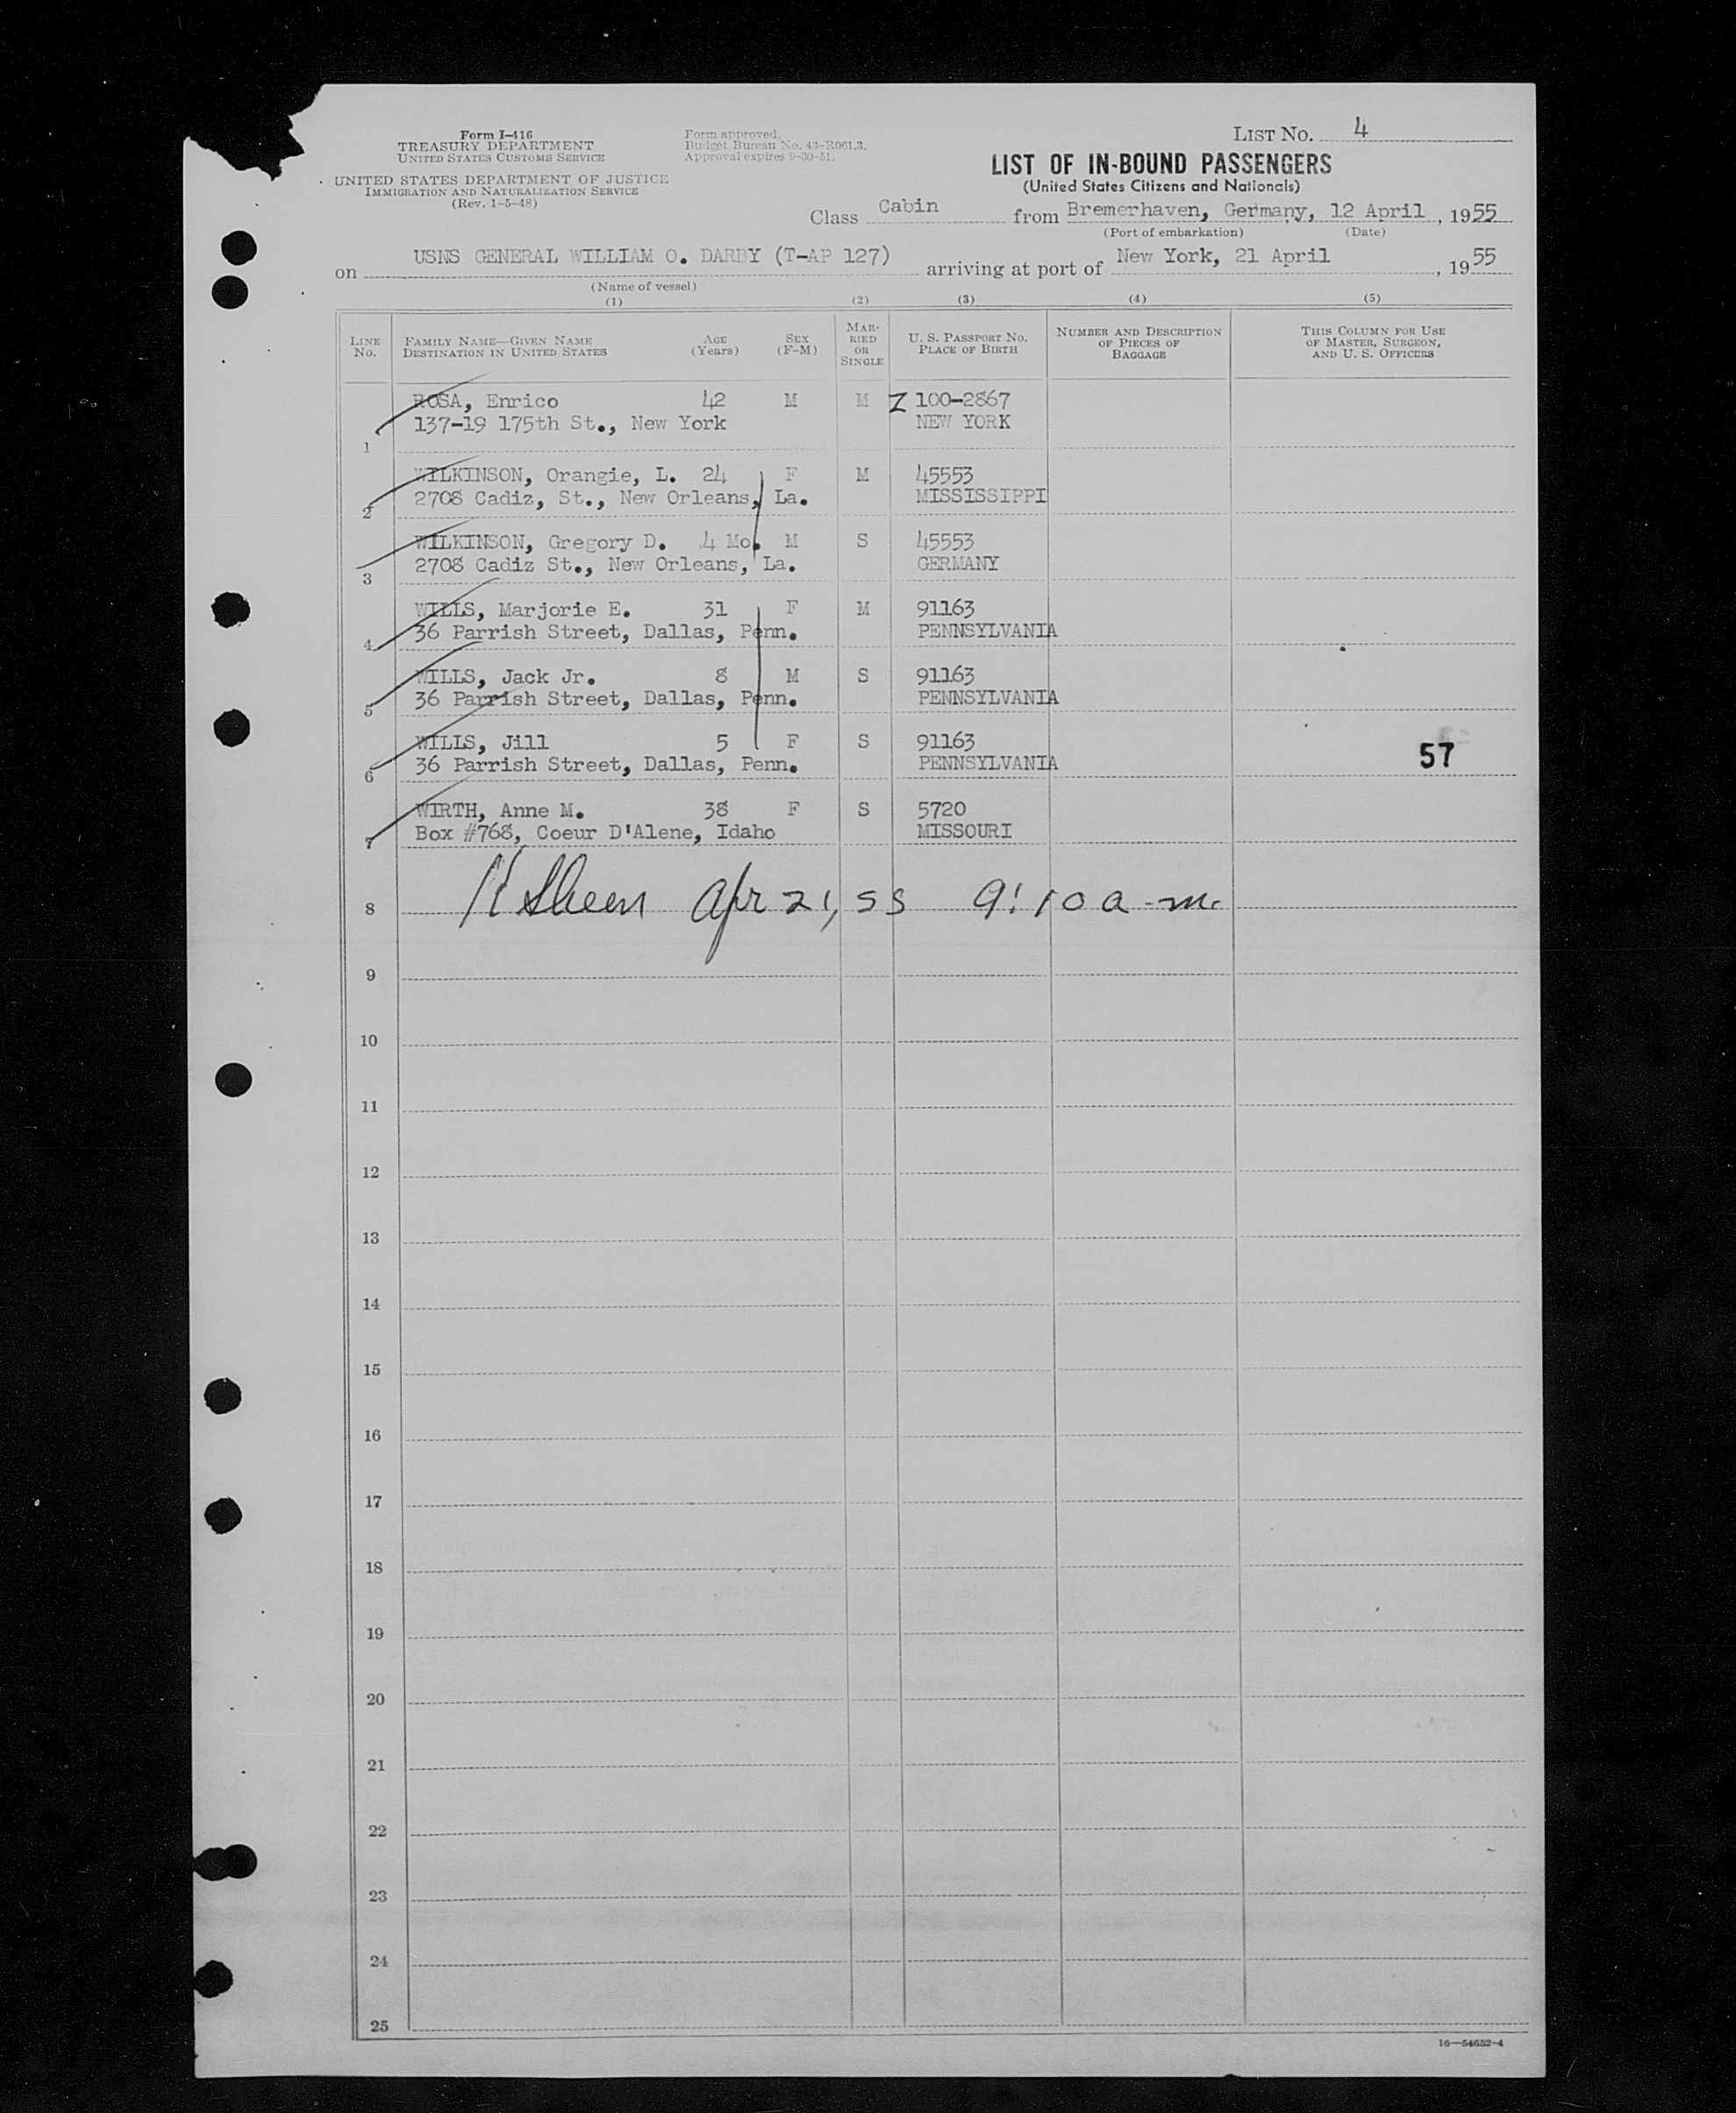 Form I-416
TREASURY DEPARTMENT
UNITED STATES CUSTOMS SERVICE
UNITED STATES DEPARTMENT OF JUSTICE
IMMIGRATION AND NATURALIZATION SERVICE
(Rev. 1-5-48)
Form approved.
Budget Bureau No. 43-R061.3.
Approval expires 9-30-51.
LIST NO. 4
LIST OF IN-BOUND PASSENGERS
(United States Citizens and Nationals)
Class Cabin from Bremerhaven, Germany, 12 April, 1955
(Port of embarkation) (Date)
on USNS GENERAL WILLIAM O. DARBY (T-AP 127) arriving at port of New York, 21 April, 1955
(Name of vessel)
(1) (2) (3) (4) (5)
LINE NO.
FAMILY NAME—GIVEN NAME
DESTINATION IN UNITED STATES
AGE (Years)
SEX (F-M)
MARRIED OR SINGLE
U. S. PASSPORT NO.
PLACE OF BIRTH
NUMBER AND DESCRIPTION OF PIECES OF BAGGAGE
THIS COLUMN FOR USE OF MASTER, SURGEON, AND U. S. OFFICERS
ROSA, Enrico 42 M M Z 100-2867
1 137-19 175th St., New York NEW YORK
WILKINSON, Orangie, L. 24 F M 45553
2 2708 Cadiz, St., New Orleans, La. MISSISSIPPI
WILKINSON, Gregory D. 4 Mo. M S 45553
3 2708 Cadiz St., New Orleans, La. GERMANY
WILLS, Marjorie E. 31 F M 91163
4 36 Parrish Street, Dallas, Penn. PENNSYLVANIA
WILLS, Jack Jr. 8 M S 91163
5 36 Parrish Street, Dallas, Penn. PENNSYLVANIA
WILLS, Jill 5 F S 91163
6 36 Parrish Street, Dallas, Penn. PENNSYLVANIA
57
WIRTH, Anne M. 38 F S 5720
7 Box #768, Coeur D'Alene, Idaho MISSOURI
8 Apr 21, 55 9:10 a.m.
9
10
11
12
13
14
15
16
17
18
19
20
21
22
23
24
25
16—54652-4